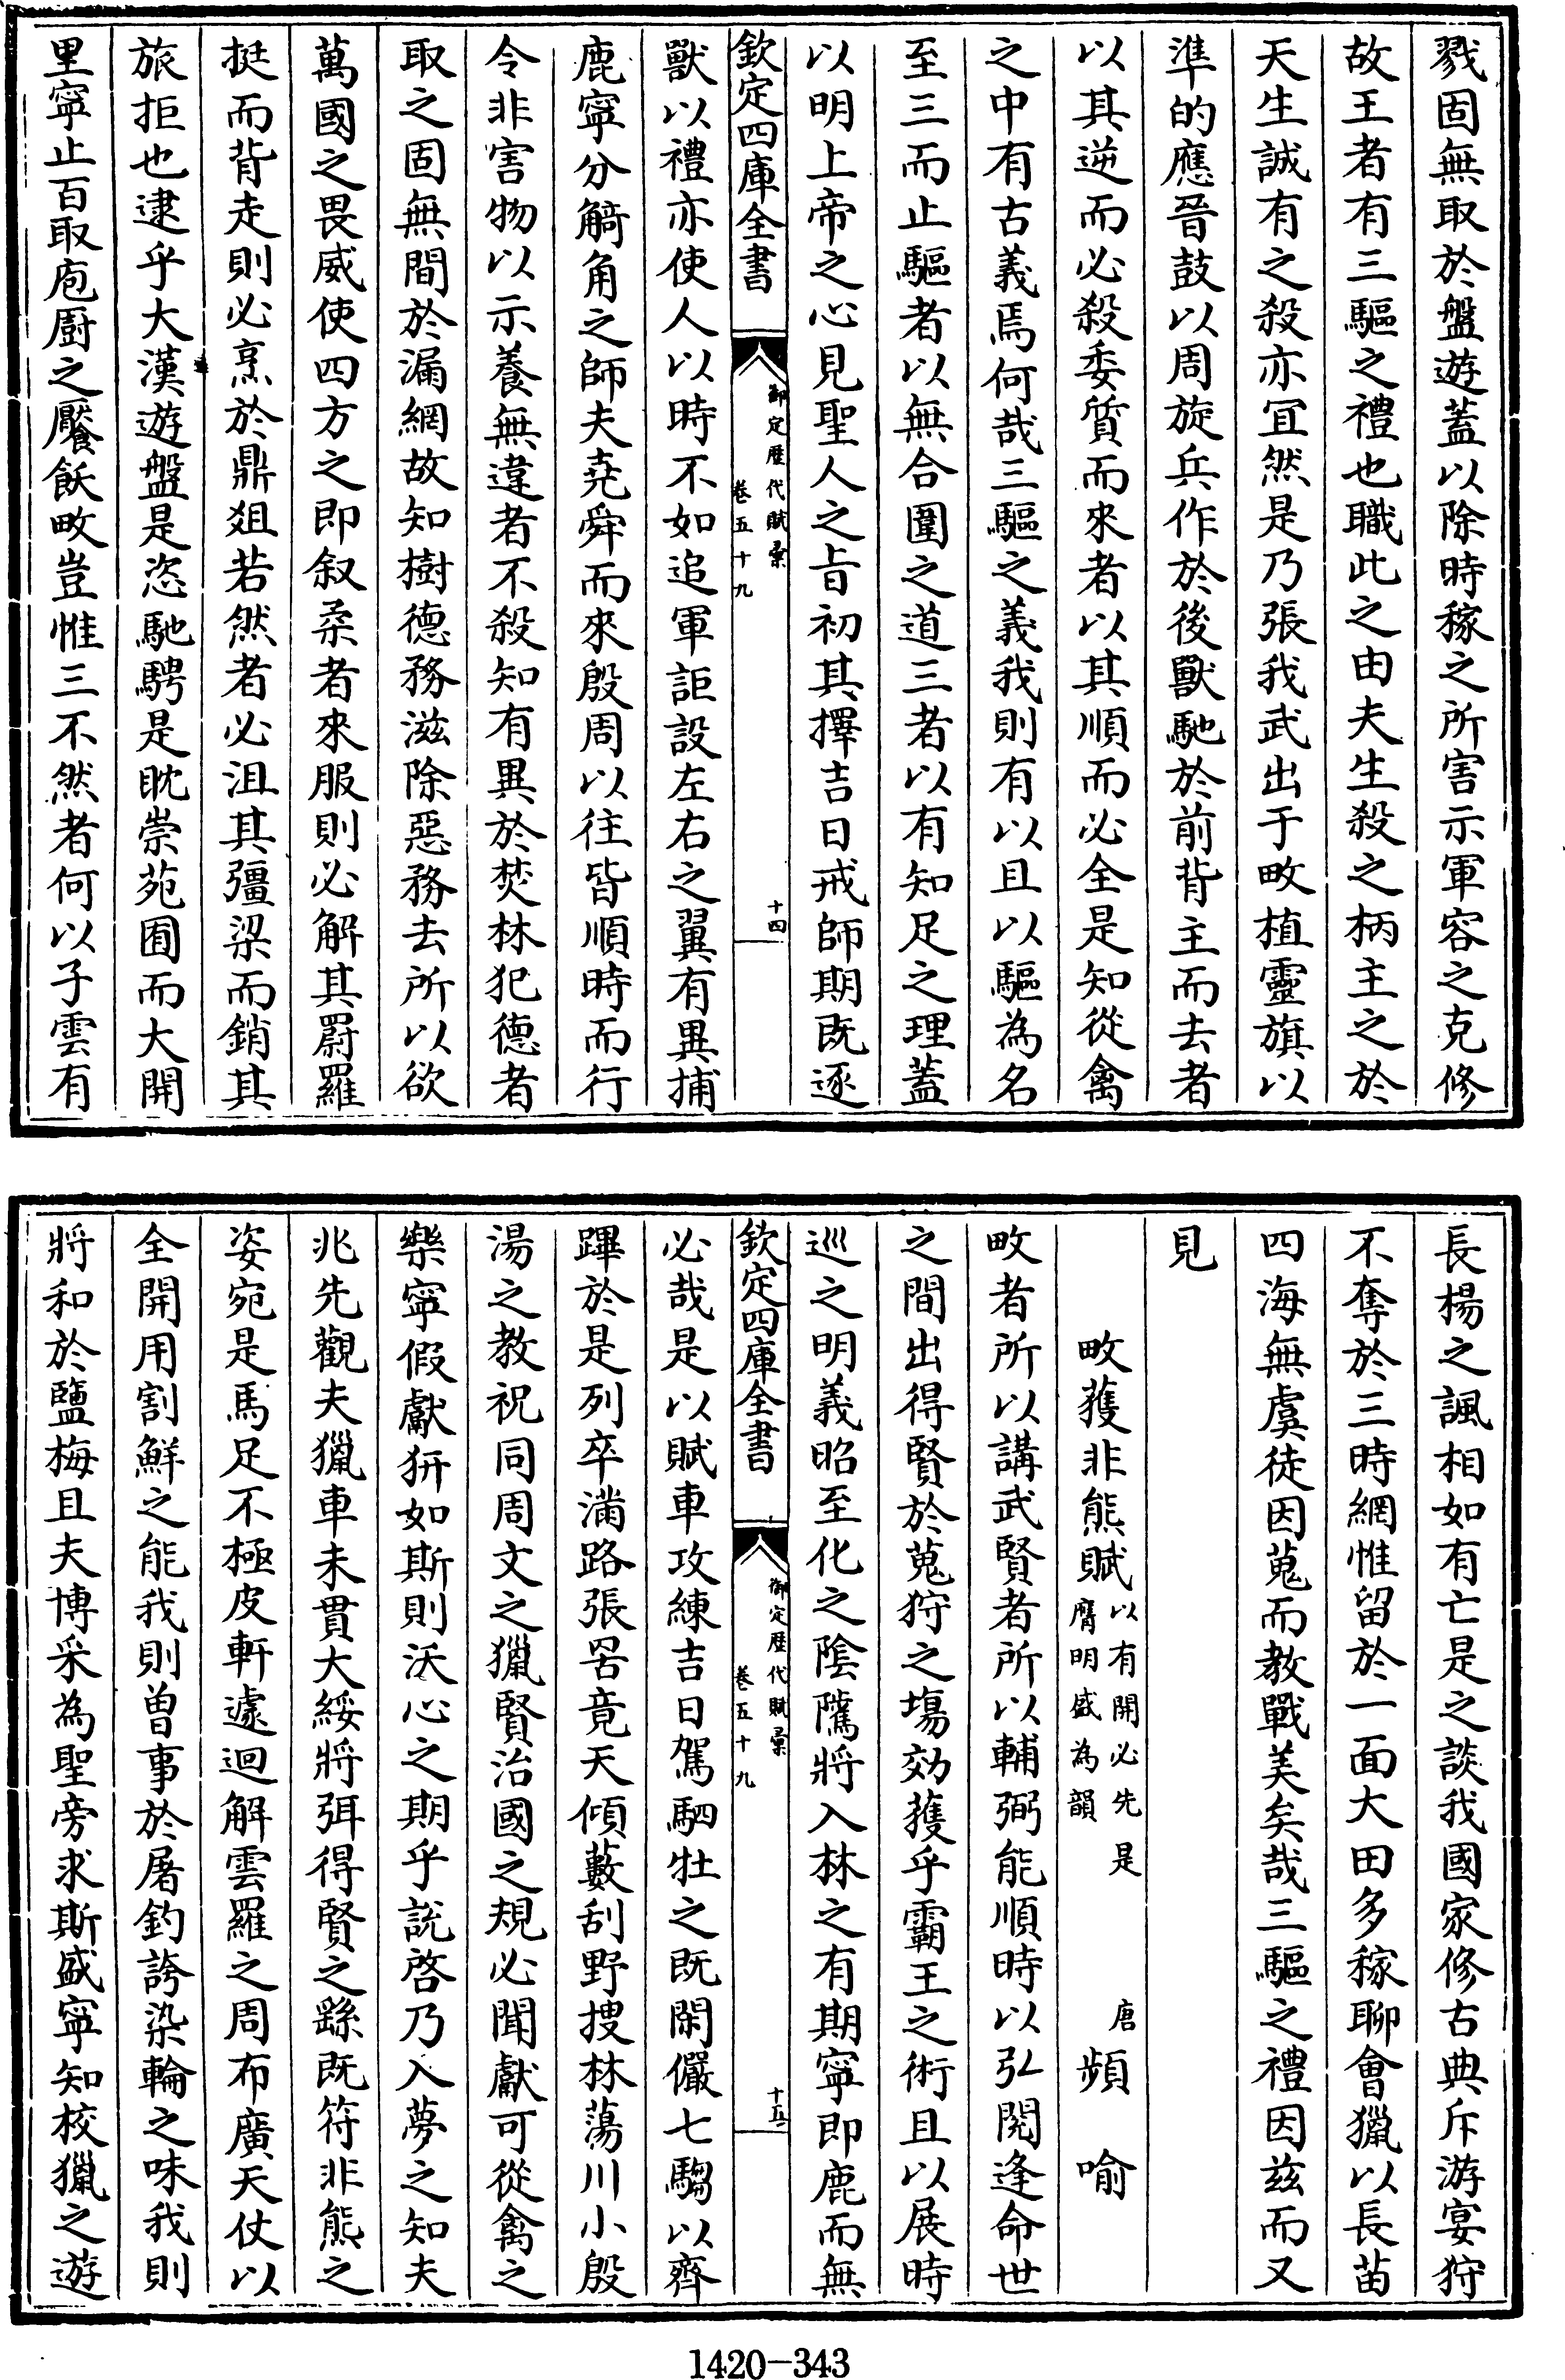 戮固無取於盤遊蓋以除時稼之所害示軍容之克修
故王者有三驅之禮也職此之由夫生殺之柄主之於
天生誠有之殺亦宜然是乃張我武出于畋植靈旗以
準的應晉鼓以周旋兵作於後獸馳於前背主而去者
以其逆而必殺委質而來者以其順而必全是知從禽
之中有古義焉何哉三驅之義我則有以且以驅為名
至三而止驅者以無合圍之道三者以有知足之理蓋
以明上帝之心見聖人之旨初其擇吉日戒師期既逐
欽定四庫全書
御定歷代賦彙
卷五十九
十四
獸以禮亦使人以時不如追軍詎設左右之翼有異捕
鹿寧分觭角之師夫堯舜而來殷周以往皆順時而行
令非害物以示養無違者不殺知有異於焚林犯德者
取之固無間於漏網故知樹德務滋除惡務去所以欲
萬國之畏威使四方之即叙柔者來服則必解其罻羅
挺而背走則必烹於鼎俎若然者必沮其彊梁而銷其
旅拒也逮乎大漢遊盤是恣馳騁是耽崇苑囿而大開
里寧止百取庖廚之饜飫畋豈惟三不然者何以子雲有
長楊之諷相如有亡是之談我國家修古典斥游宴狩
不奪於三時網惟留於一面大田多稼聊會獵以長苗
四海無虞徒因蒐而教戰美矣哉三驅之禮因兹而又
見
畋獲非熊賦以有開必先是膺明盛為韻
唐頻喻
畋者所以講武賢者所以輔弼能順時以弘閱逢命世
之間出得賢於蒐狩之塲効獲乎霸王之術且以展時
巡之明義昭至化之陰隲將入林之有期寧即鹿而無
欽定四庫全書
御定歷代賦彙
卷五十九
十五
必哉是以賦車攻練吉日駕駟牡之既閑儼七騶以齊
蹕於是列卒滿路張罟竟天傾藪刮野搜林蕩川小殷
湯之教祝同周文之獵賢治國之規必聞獻可從禽之
樂寧假獻豜如斯則沃心之期乎說啓乃入夢之知夫
兆先觀夫獵車未貫大綏將弭得賢之繇既符非熊之
姿宛是馬足不極皮軒遽迴解雲羅之周布廣天仗以
全開用割鮮之能我則曽事於屠釣誇染輪之味我則
將和於鹽梅且夫博采為聖旁求斯盛寧知校獵之遊
1420-343